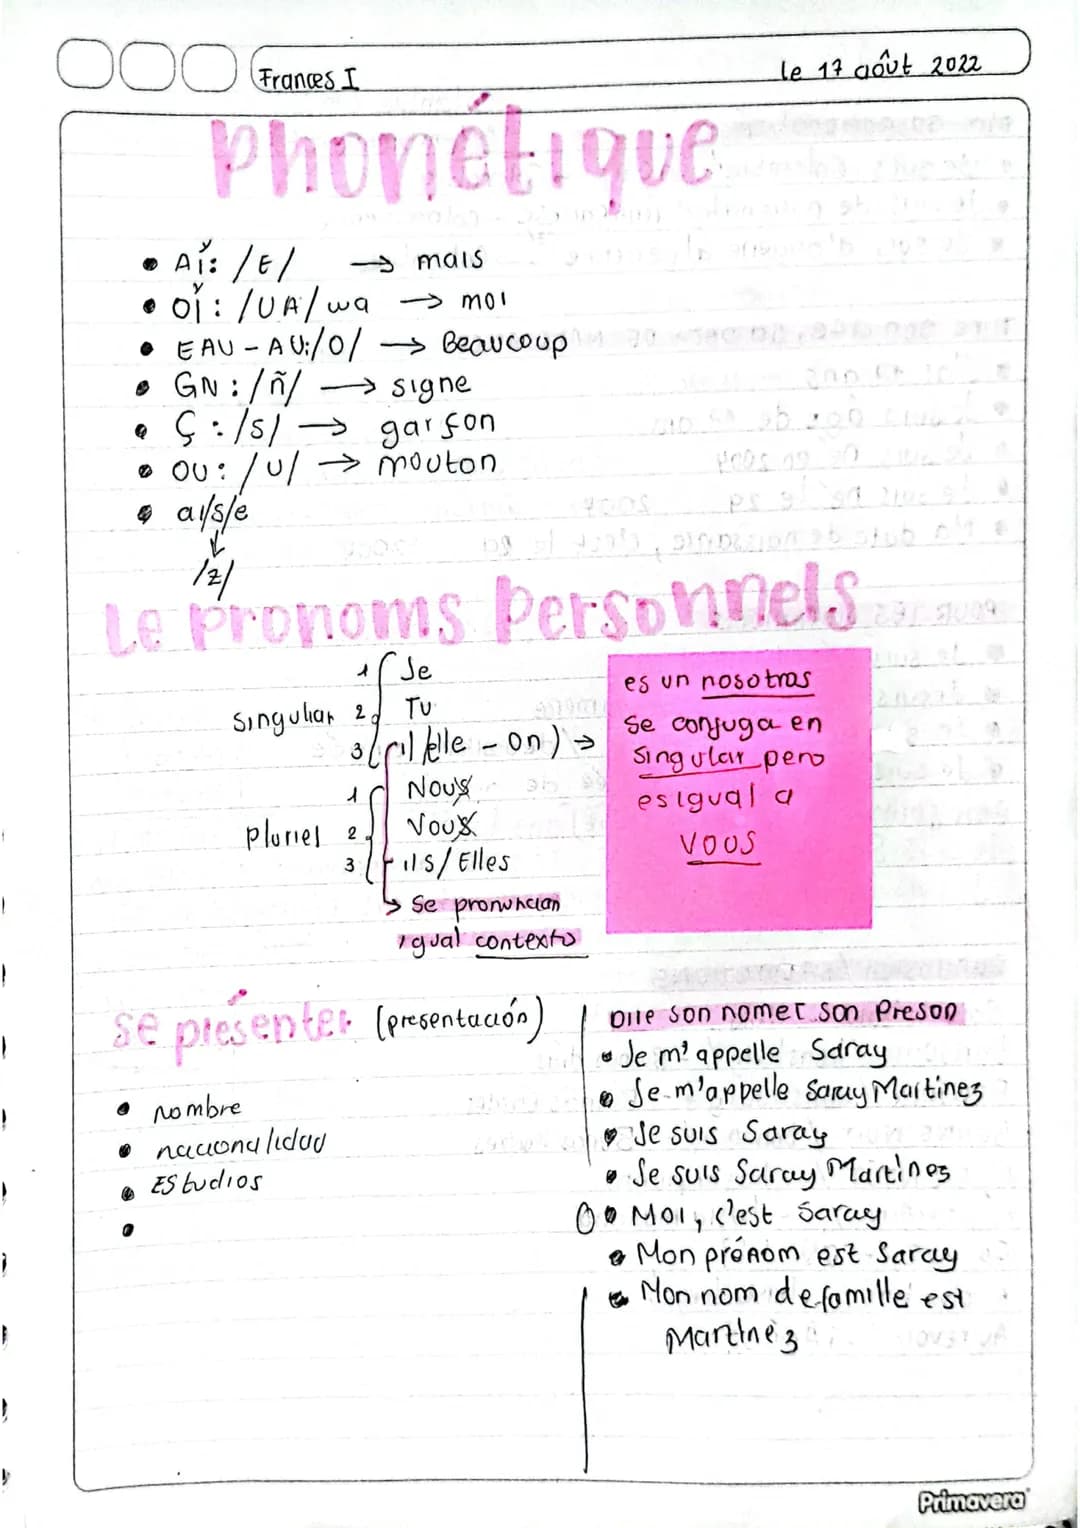 Frances I
le 17 août 2022
Phonétique
• Aï: /E/ → mais
• oï: /UA/ wa → moi
• EAU - AU: /O/ → Beaucoup
• GN: /ñ/ → signe
• Ç: /s/ → garçon
• OU: /U/ → mouton
• ai/s/e
↓
/z/
Le pronoms Personnels
singuliar
1 Je
2 Tu
3 (il/elle - on) →
pluriel
1 Nous
2 Vous
3 ils/Elles
→ Se pronuncian
igual contexto
es un nosotros
se conjuga en
singular pero
es igual a
VOUS
se présenter (presentación)
• nombre
• nacionalidad
• Estudios
•
Dire son nomet son Preson
• Je m'appelle Saray
• Je m'appelle Saray Martinez
• Je suis Saray
• Je suis Saray Martinez
• Moi, c'est Saray
• Mon prénom est Saray
• Mon nom de famille est
Martinez
Primavera